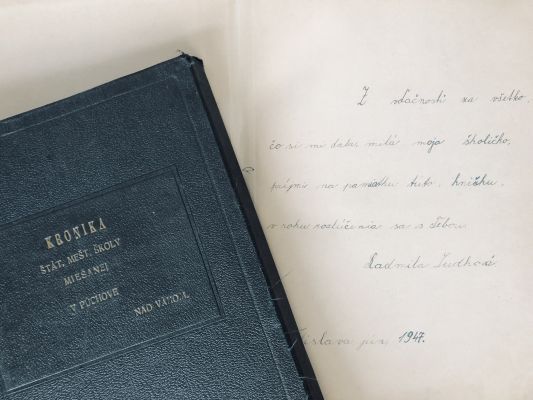 KRONIKA
ŠTÁT. MEŠT. ŠKOLY
MIEŠANEJ
V PÚCHOVE
NAD VÁHOM.
Z vďačnosti za všetko,
čo si mi dala, milá moja školičko,
prijmi na pamiatku túto knižku
v roku rozlúčenia sa s Tebou
Ladmila
jún 1947.